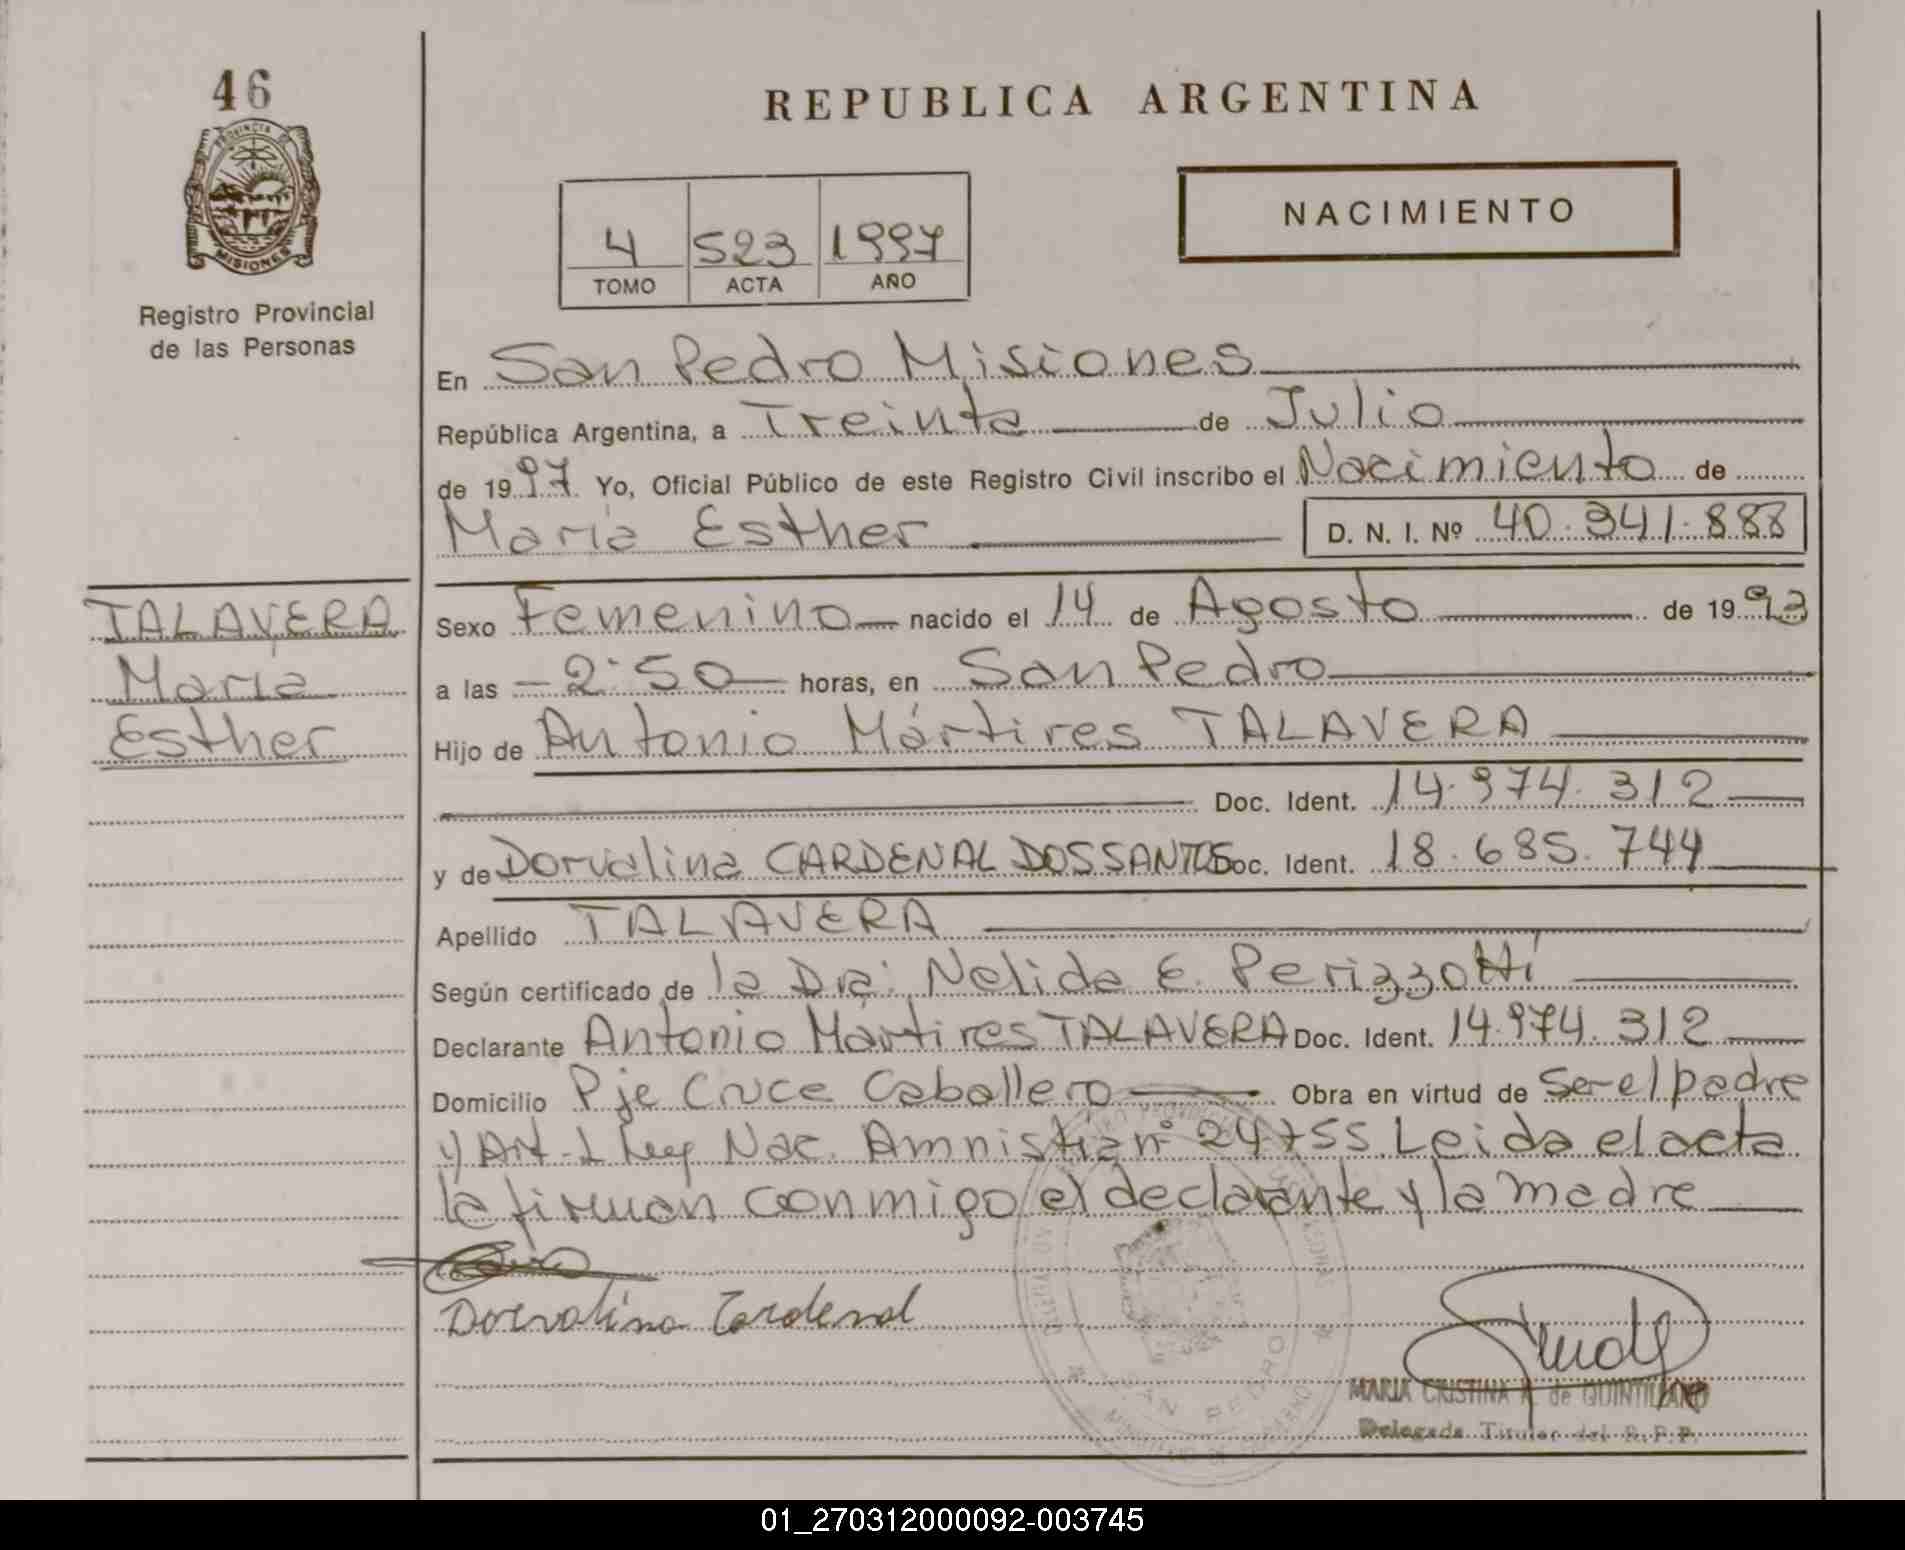 46
PROVINCIA DE
MISIONES
Registro Provincial
de las Personas
REPUBLICA ARGENTINA
NACIMIENTO
4 523 1997
TOMO ACTA AÑO
En San Pedro Misiones
República Argentina, a Treinta de Julio
de 1997 Yo, Oficial Público de este Registro Civil inscribo el Nacimiento de
María Esther D. N. I. Nº 40.341.888
TALAVERA
María
Esther
Sexo Femenino nacido el 14 de Agosto de 1993
a las 2:50 horas, en San Pedro
Hijo de Antonio Mártires TALAVERA
Doc. Ident. 14.974.312
y de Dorvalina CARDENAL DOSSANTOS Doc. Ident. 18.685.744
Apellido TALAVERA
Según certificado de la Dra: Nelida E. Perizzotti
Declarante Antonio Mártires TALAVERA Doc. Ident. 14.974.312
Domicilio Pje Cruce Caballero Obra en virtud de Ser el padre
y Art. 1 Ley Nac. Amnistía nº 24755. Leida el acta
la firman conmigo el declarante y la madre
Dorvalina Cardenal
SAN PEDRO
MARIA CRISTINA de QUINTILLANO
Delegada Titular del R.P.P.
01_270312000092-003745